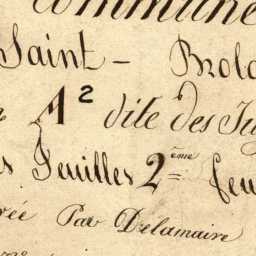 commune
Saint - Brola
A 2 dite des
Feuilles 2ème feu
rée Par Delamaire